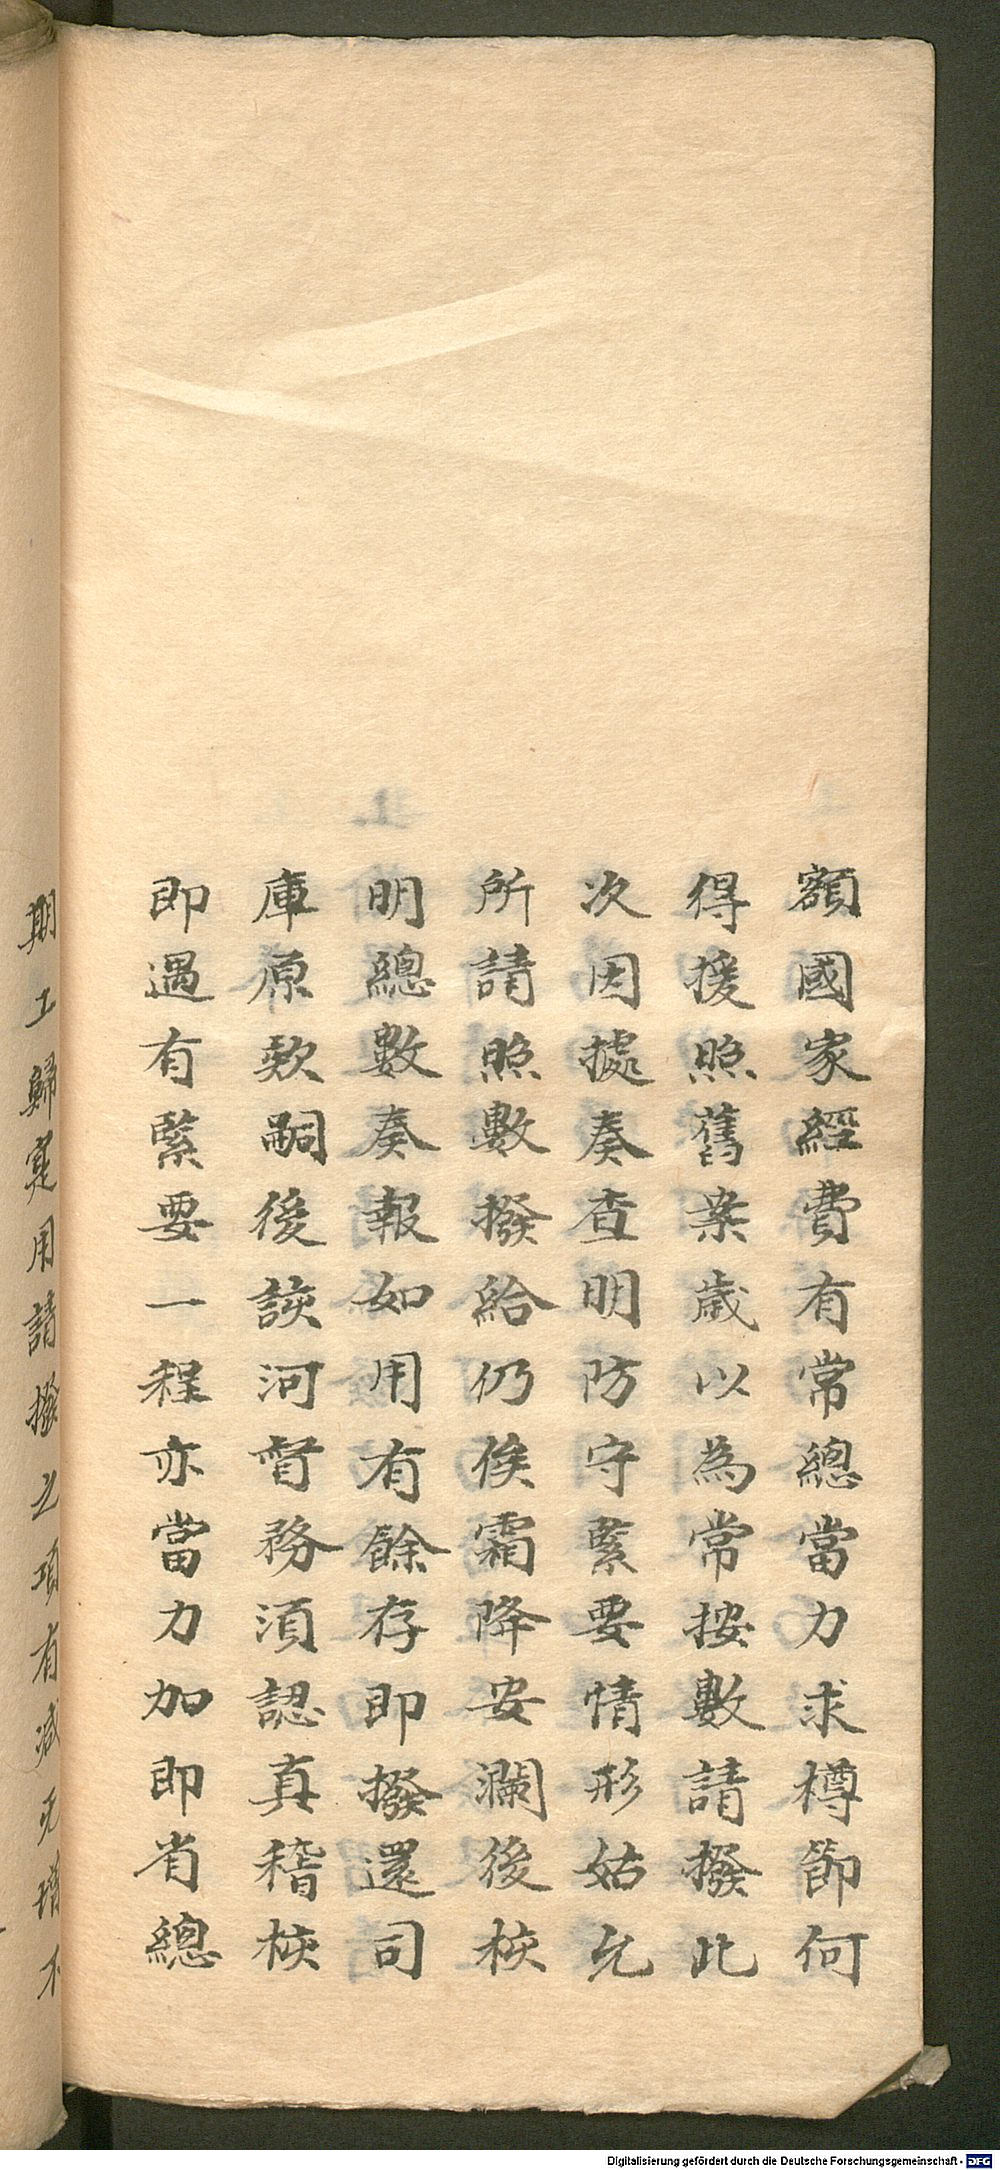 額國家經費有常總當力求樽節何
得援照舊案歲以為常按數請撥此
次因據奏查明防守緊要情形姑允
所請照數撥給仍俟霜降安瀾後核
明總數奏報如用有餘存即撥還司
庫原款嗣後該河督務須認真稽核
即遇有緊要一程亦當力加即省總
期工歸寔用請撥之項有減无增不
Digitalisierung gefördert durch die Deutsche Forschungsgemeinschaft - DFG